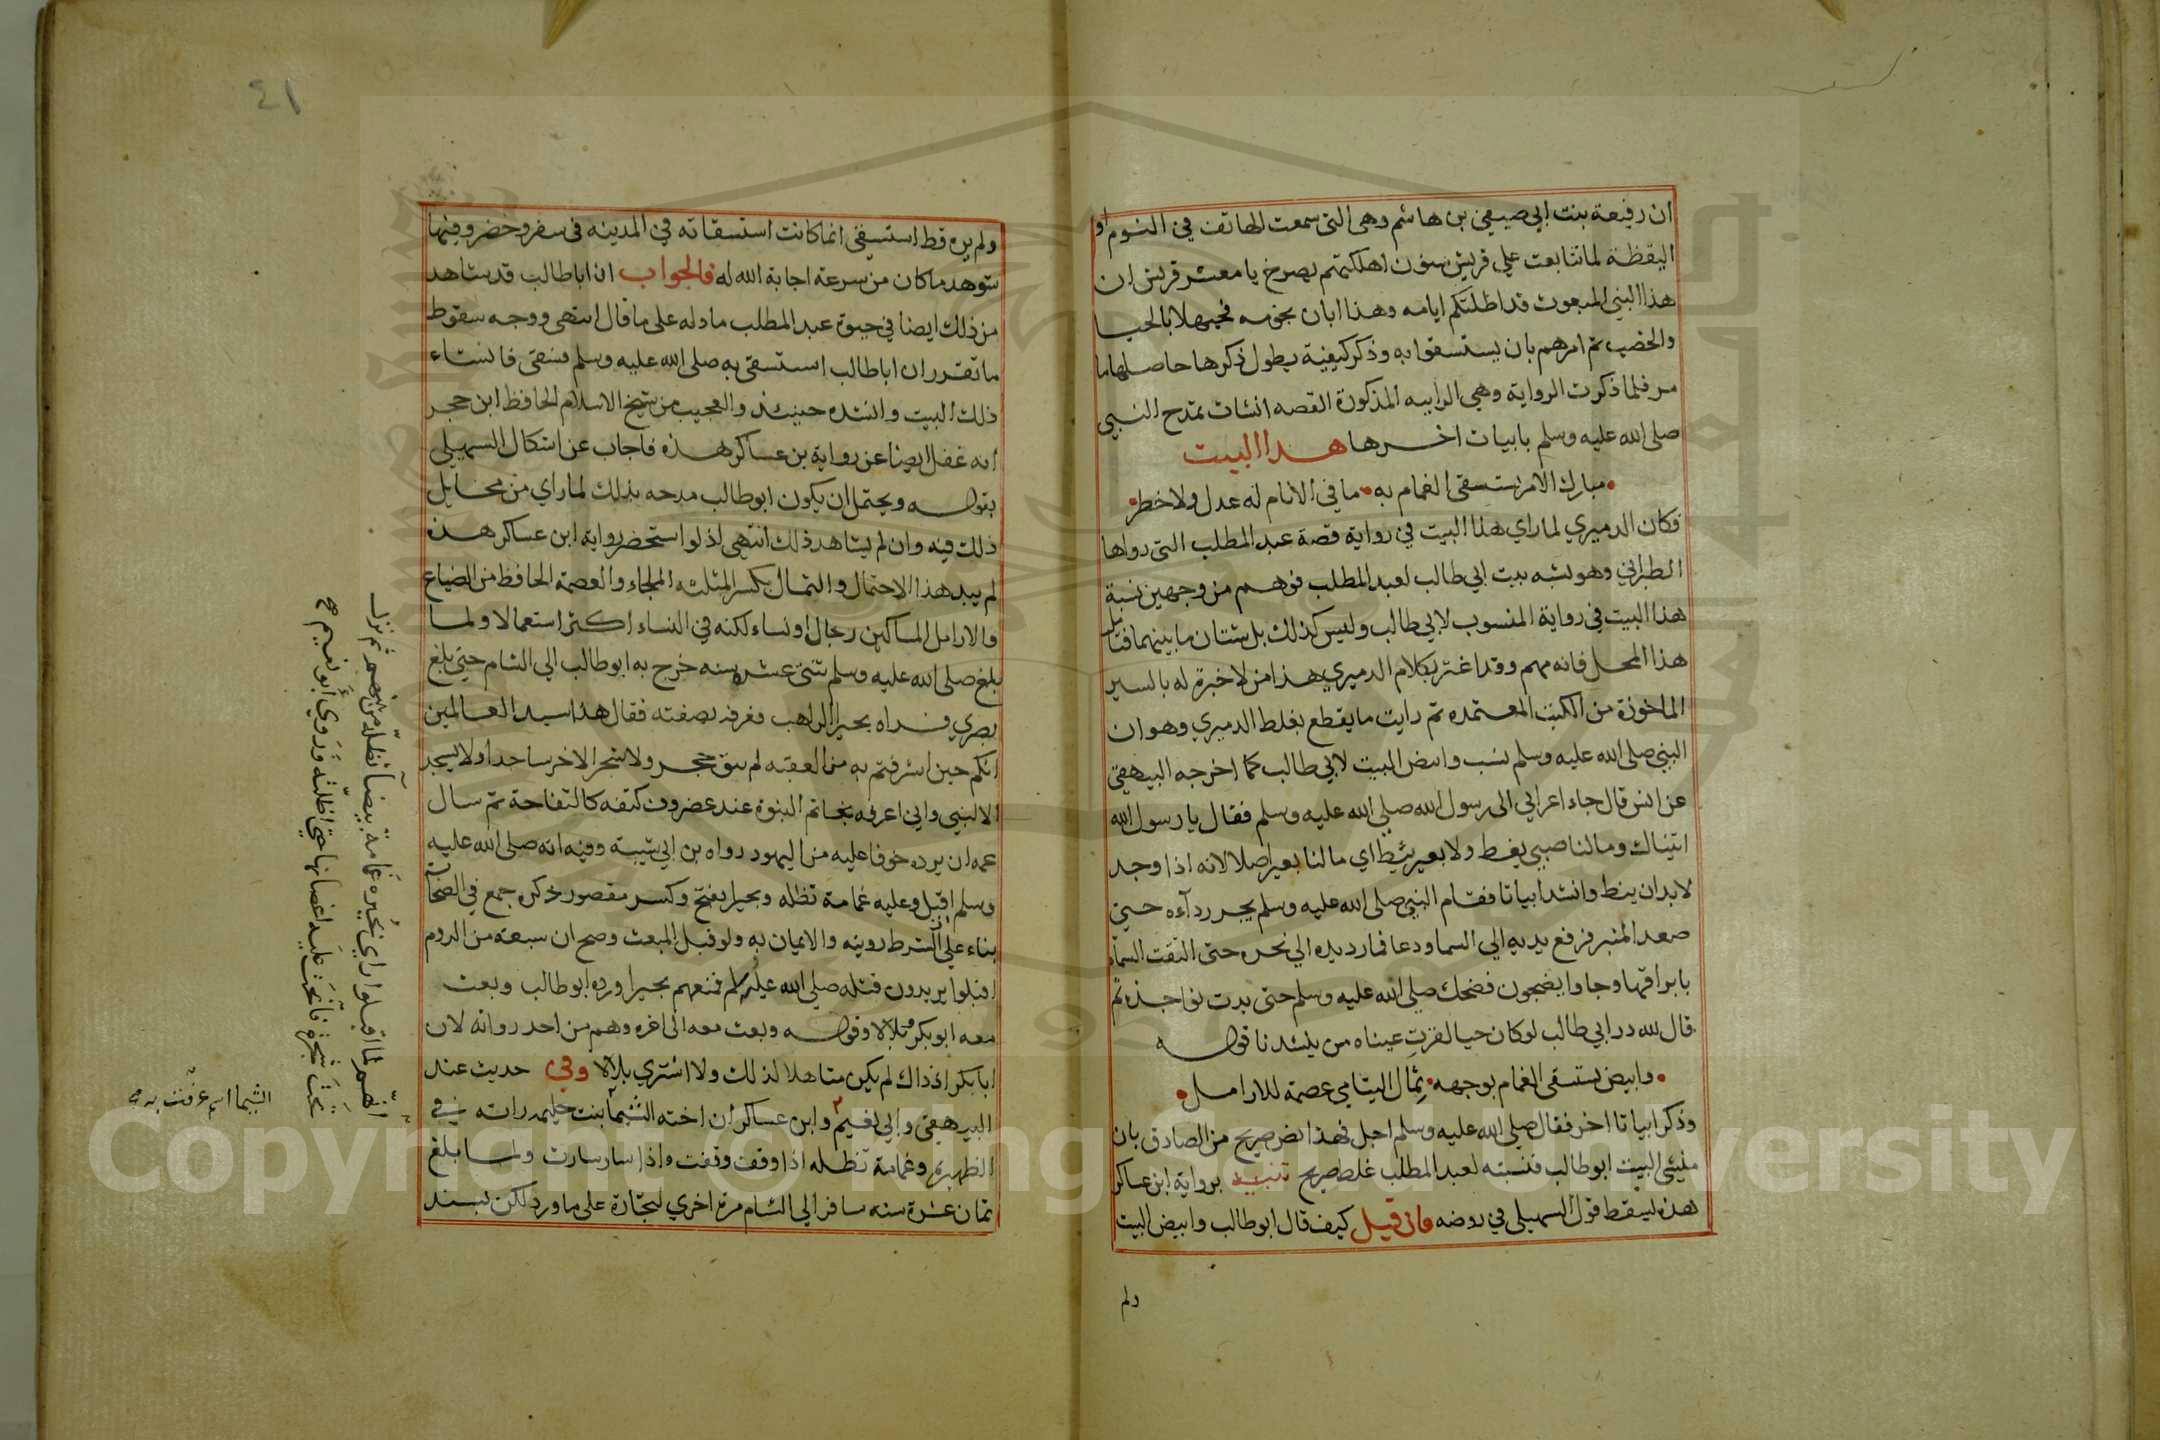 ان رفيعة بنت ابي صيفي بن هاشم وهي التي سمعت الهاتف في النوم او
اليقظة لما تتابعت علي قريش سنون اهلكتهم يصرخ يا معشر قريش ان
هذا النبي المبعوث قد اظلتكم ايامه وهذا ابان نجومه فحيهلا بالحيا
والخصب ثم امرهم بان يستسقوا به وذكر كيفية يطول ذكرها حاصلها ما
مر فلما ذكرت الرواية وهي الرابيه المذكورة القصه انشات تمدح النبي
صلى الله عليه وسلم بابيات اخرها هذا البيت
مبارك الامر يستسقى الغمام به ما في الانام له عدل ولا خطر
فكان الدميري لما راي هذا البيت في رواية قصة عبد المطلب التي رواها
الطبراني وهو يشبه بيت ابي طالب لعبد المطلب فوهم من وجهين نسبة
هذا البيت في رواية المنسوب لابي طالب وليس كذلك بل شتان ما بينهما فتامل
هذا المحل فانه مهم وقد اغتر بكلام الدميري هذا من لا خبرة له بالسير
الماخوذة من الكتب المعتمده ثم رايت ما يقطع بغلط الدميري وهو ان
النبي صلى الله عليه وسلم نسب وابيض البيت لابي طالب كما اخرجه البيهقي
عن انس قال جاء اعرابي الى رسول الله صلى الله عليه وسلم فقال يا رسول الله
اتيناك وما لنا صبي يغط ولا بعير يئط اي ما لنا بعير اصلا لانه اذا وجد
لا بد ان يئط وانشد ابياتا فقام النبي صلى الله عليه وسلم يجر رداءه حتى
صعد المنبر فرفع يديه الي السما ودعا فما رد يده الي نحره حتى التقت السماء
بابراقها وجاوا يضجون فضحك صلى الله عليه وسلم حتى بدت نواجذه ثم
قال لله در ابي طالب لو كان حيا لقرت عيناه من ينشدنا قوله
وابيض يستسقى الغمام بوجهه ثمال اليتامي عصمة للارامل
وذكر ابياتا اخر فقال صلى الله عليه وسلم اجل فهذا نص صريح من الصادق بان
منشئ البيت ابو طالب فنسبته لعبد المطلب غلط صريح تنبيه برواية ابن عساكر
هذه يسقط قول السهيلي في روضه فان قيل كيف قال ابو طالب وابيض البيت
ولم
٤١
ولم يره قط استسقى انما كانت استسقاته في المدينه في سفر وحضر وفيها
شوهد ما كان من سرعة اجابة الله له فالجواب ان ابا طالب قد شاهد
من ذلك ايضا في حيوة عبد المطلب ما دله على ما قال انتهى ووجه سقوط
ما تقرر ان ابا طالب استسقى به صلى الله عليه وسلم فسقى فانشاء
ذلك البيت وانشده حينئذ والعجيب من شيخ الاسلام الحافظ ابن حجر
انه غفل ايضا عن رواية بن عساكر هذه فاجاب عن اشكال السهيلي
بقوله ويحتمل ان يكون ابو طالب مدحه بذلك لما راي من مخايل
ذلك فيه وان لم يشاهد ذلك انتهي اذ لو استحضر رواية ابن عساكر هذه
لم يبد هذا الاحتمال والثمال بكسر المثلثه الملجاء والعصمه الحافظ من الضياع
والارامل المساكين رجال او نساء لكنه في النساء اكثر استعمالا ولما
بلغ صلى الله عليه وسلم ثنتي عشره سنه خرج به ابو طالب الي الشام حتي بلغ
بصري فراه بحيرا الراهب فعرفه بصفته فقال هذا سيد العالمين
انكم حين اشرفتم به من العقبه لم يبق حجر ولا شجر الا خر ساجدا ولا يسجد
الا لنبي واني اعرفه بخاتم النبوة عند غضروف كتفه كالتفاحة ثم سال
عمه ان يرده خوفا عليه من اليهود رواه بن ابي شيبة وفيه انه صلى الله عليه
وسلم اقبل وعليه غمامة تظله وبحيرا بفتح وكسر مقصور ذكره جمع في الصحابة
بناء علي اشترط رويته والايمان به ولو قبل المبعث وصح ان سبعة من الروم
اقبلوا يريدون قتله صلى الله عليه وسلم فمنعهم بحيرا ورده ابو طالب وبعث
معه ابو بكر بلالا وقوله وبعث معه الى اخره وهم من احد رواته لان
ابا بكر اذ ذاك لم يكن متاهلا لذلك ولا اشترى بلالا وفي حديث عند
البيهقي وابي نعيم وابن عساكر ان اخته الشيما بنت حليمه راته في
الظهيرة وغمامة تظله اذا وقف وقفت واذا سار سارت ولما بلغ
ثمان عشرة سنه سافر الي الشام مرة اخري لتجارة على ما ورد لكن بسند
انضم لما اقبلوا راي بحيره غمامة بيضا تظله من بينهم ثم نزل
تحت شجرة فانحنت عليه اغصانها حتي اظلته وروي ابو نعيم صح
الشيما اسم عرفت به صح
Copyright © King Saud University